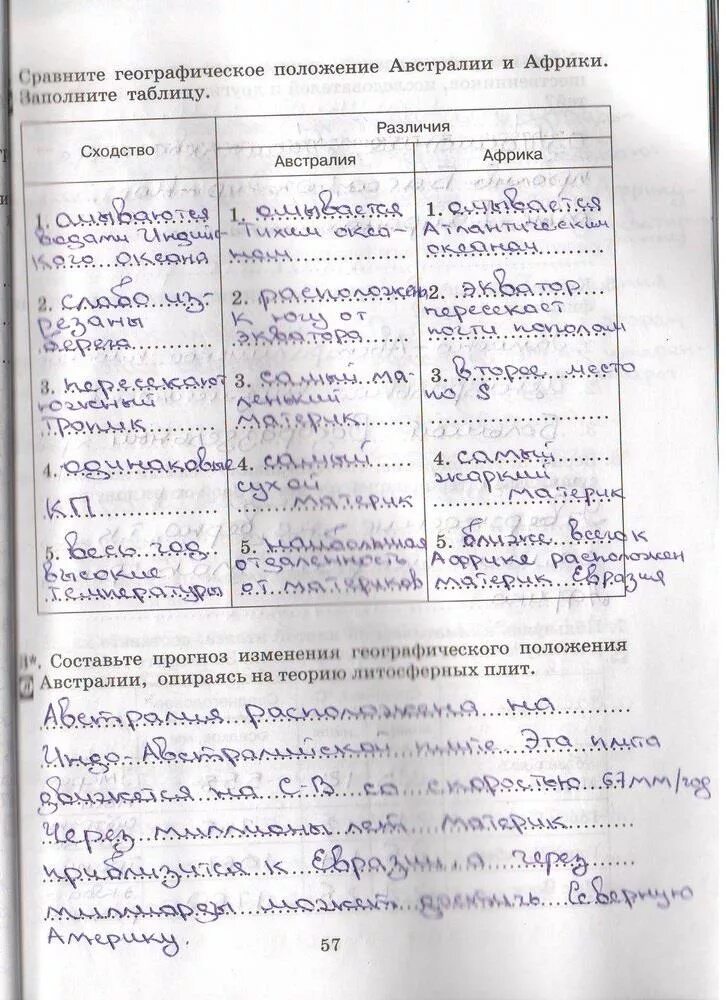 Сравните географическое положение Австралии и Африки.
Заполните таблицу.
Сходство
Различия
Австралия
Африка
1. омываются
водами Индий-
ского океана
1. омывается
Тихим океа-
ном
1. омывается
Атлантическим
океаном
2. слабо из-
резаны
берега
2. расположена
к югу от
экватора
2. экватор
пересекает
почти пополам
3. пересекает
южный
тропик
3. самый ма-
ленький
материк
3. второе место
по S
4. одинаковые
К.П.
4. самый
сухой
материк
4. самый
жаркий
материк
5. весь год
высокие
температуры
5. наибольшая
отдаленность
от материков
5. ближе всего к
Африке расположен
материк Евразия
3*. Составьте прогноз изменения географического положения
Австралии, опираясь на теорию литосферных плит.
Австралия расположена на
Индо-Австралийской плите Эта плита
движется на С-В со скоростью 67мм/год
Через миллионы лет материк
приблизится к Евразии а через
миллиарды может достичь Северную
Америку.
57